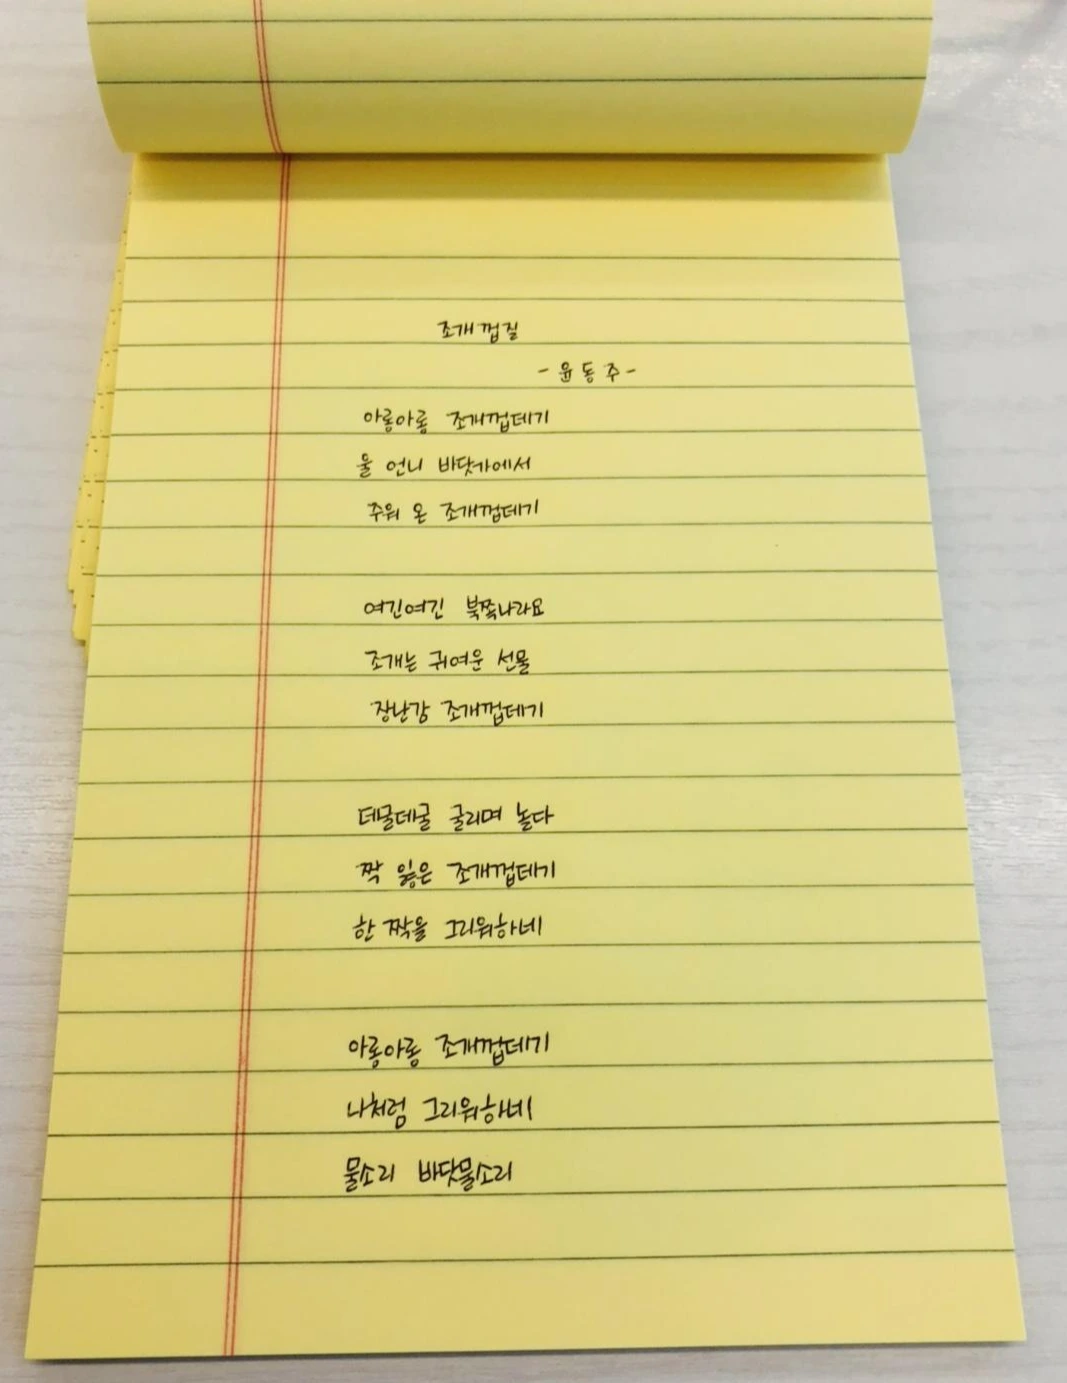 조개껍질
- 윤동주 -
아롱아롱 조개껍데기
울 언니 바닷가에서
주워 온 조개껍데기
여긴여긴 북쪽나라요
조개는 귀여운 선물
장난감 조개껍데기
데굴데굴 굴리며 놀다
짝 잃은 조개껍데기
한 짝을 그리워하네
아롱아롱 조개껍데기
나처럼 그리워하네
물소리 바닷물소리